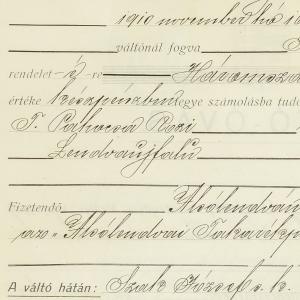 1910 november hó 1
váltónál fogva
rendelet-é-re Háromszá
értéke készpénzben egye számolásba tud
T. Palkocsa Rozi
Lendvaujfalu
Fizetendő Alsólendván
azo "Alsólendvai Takarékp
A váltó hátán: Szak József s.k.